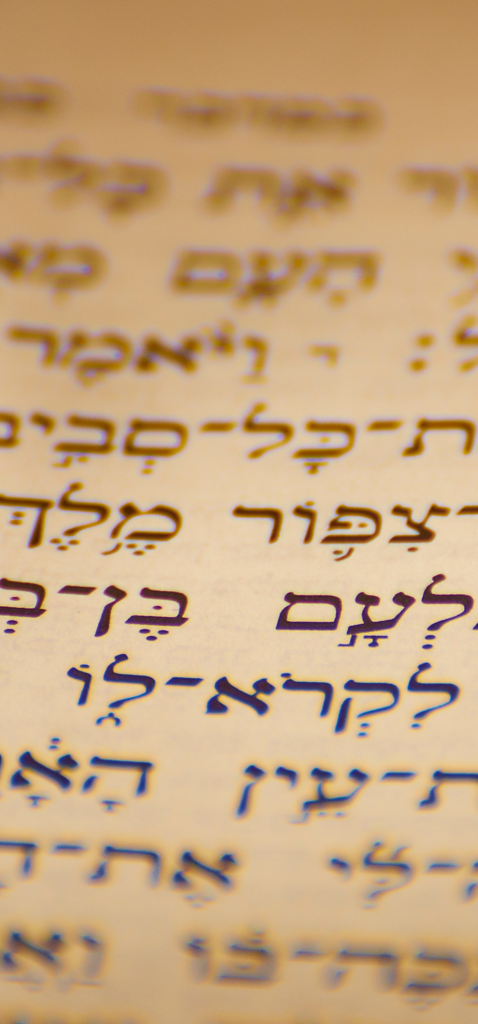 אֵת
הָעָם מְא
וַיֹּאמֶר
ת־כָּל־סְבִ֣יב
־צִפּ֛וֹר מֶ֥לֶךְ
לְעָ֣ם בֶּן־בְּ
לִקְרֹא־ל֑וֹ
ת־עֵ֣ין הָאָ֔ר
־לִּי אֶת־הָ
נַכֶּה־בּוֹ וַאֲ